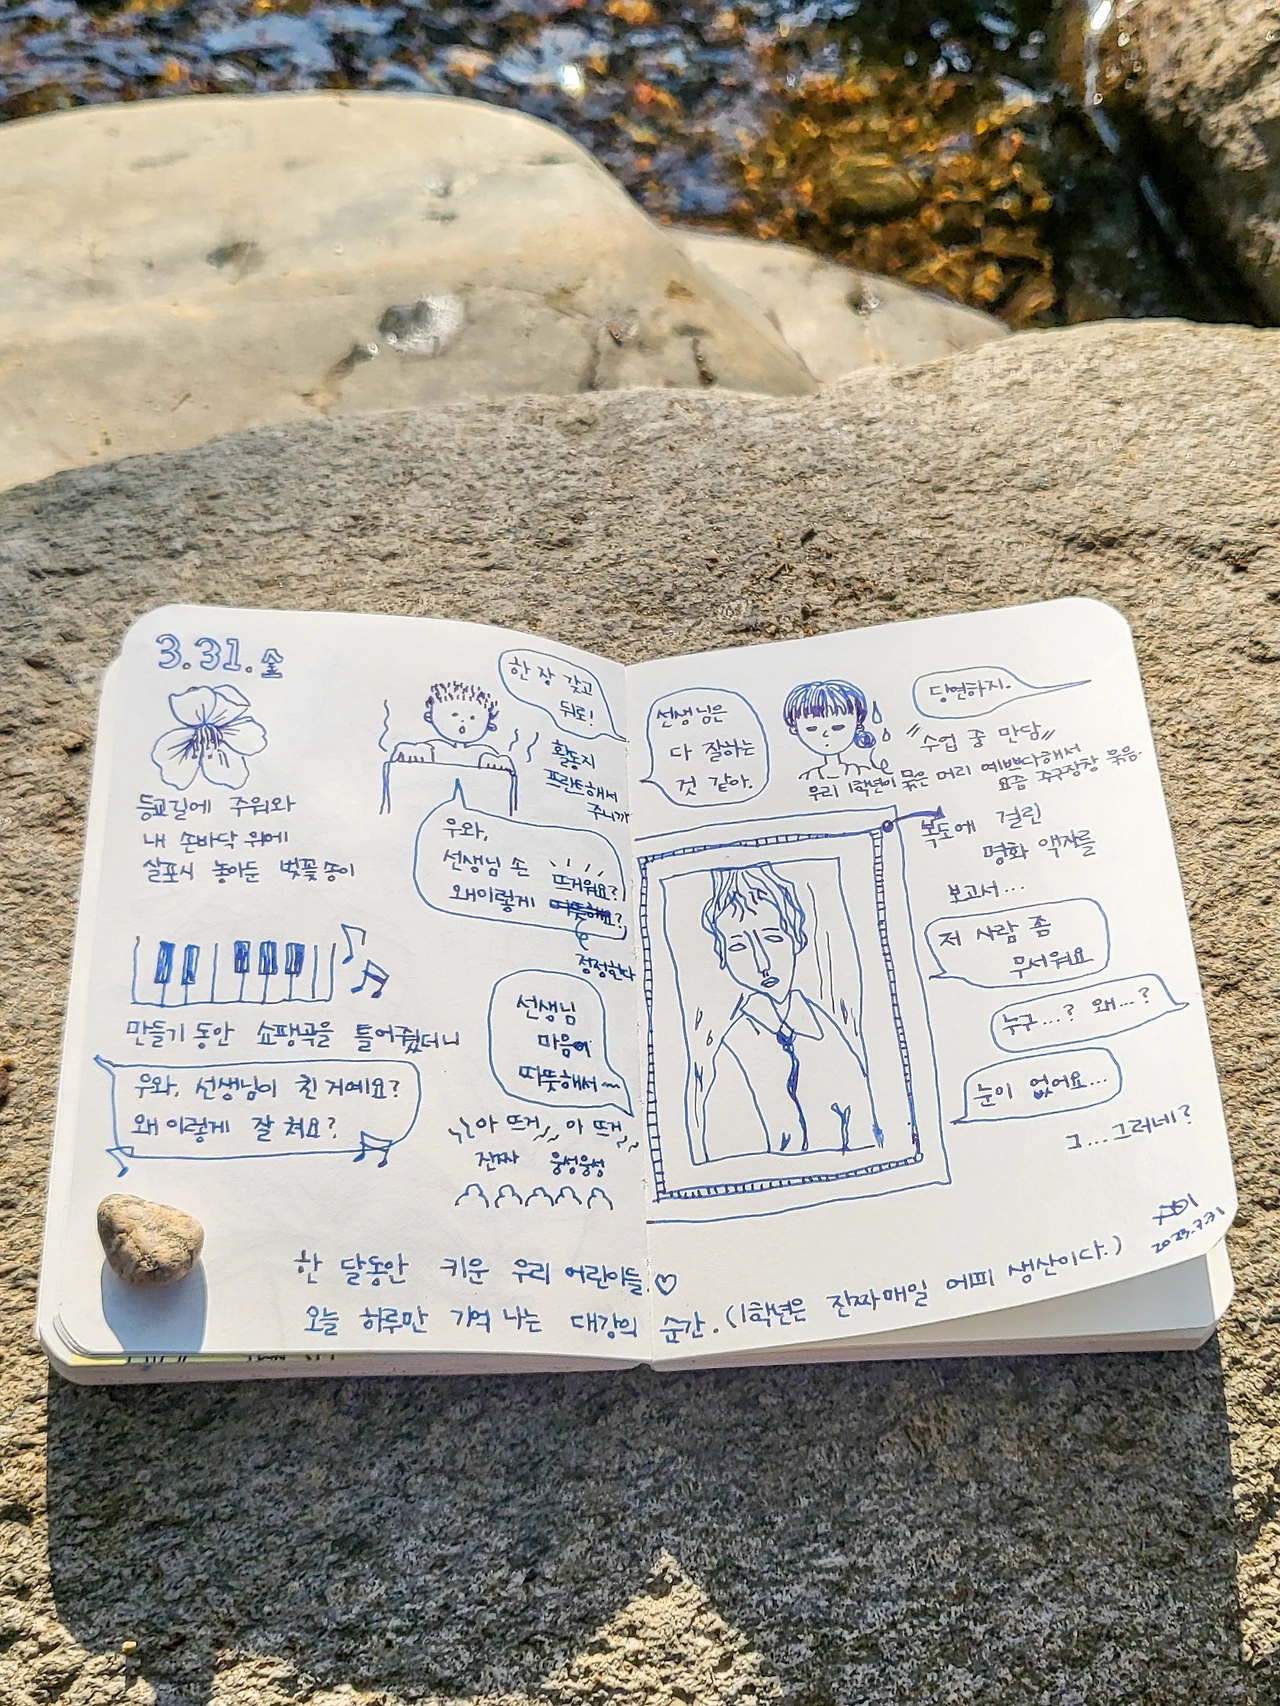 3.31.金
등교길에 주워와
내 손바닥 위에
살포시 놓아둔 벚꽃송이
한 장 갖고
뒤로!
활동지
프린트해서
주니까
우와,
선생님 손
왜이렇게 뜨거워요?
따뜻해요?
정정한다
만들기 동안 쇼팽곡을 틀어줬더니
우와, 선생님이 친 거예요?
왜 이렇게 잘 쳐요?
선생님
마음이
따뜻해서~
아 뜨거 아 뜨거
진짜 웅성웅성
선생님은
다 잘하는
것 같아.
당연하지.
"수업 중 만담"
우리 1학년이 묶은 머리 예쁘다해서
요즘 주구장창 묶음.
복도에 걸린
명화 액자를
보고서...
저 사람 좀
무서워요
누구...? 왜...?
눈이 없어요...
그...그러네?
2023.3.31
한 달동안 키운 우리 어린이들♡
오늘 하루만 기억 나는 대강의 순간. (1학년은 진짜 매일 에피 생산이다.)